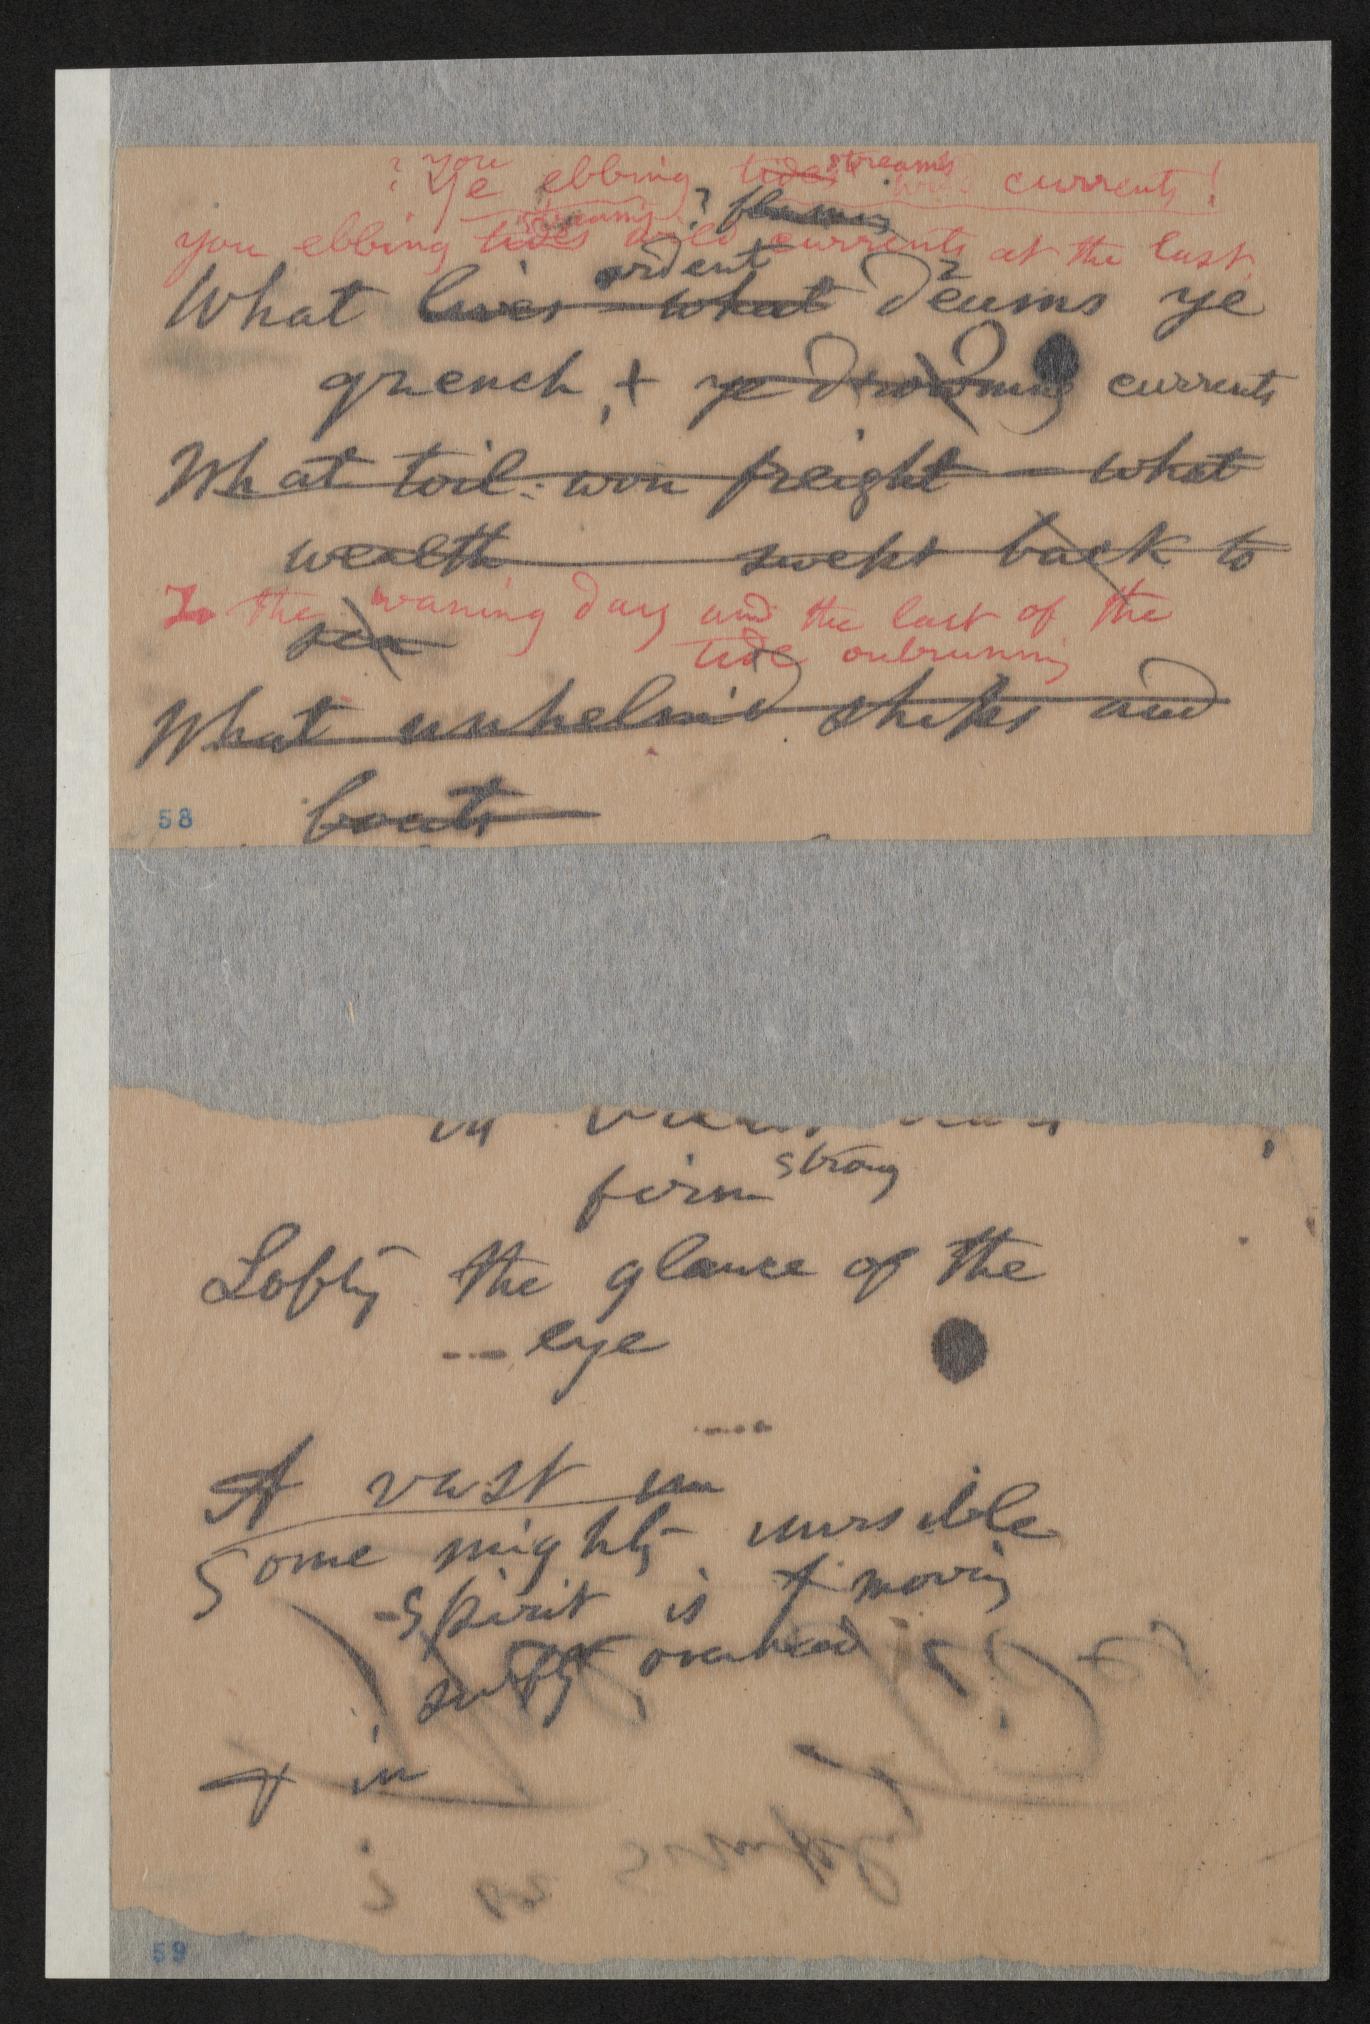 ? You
Ye ebbing tides streams and currents!
streams ?
you ebbing tides and currents at the last
ardent
What lives what dreams ye
quench, + ye drowning currents
What toil-won freight – what
wealth swept back to
In the waning day and the last of the
sea
tide outrunning
What unhelm'd ships and
boats
58
in
firm strong
Lofty the glance of the
--- eye
A vast un
Some mighty unvisible
-Spirit is + moving
swiftly overhead
+ in
59